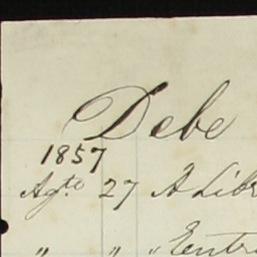 Debe
1857
Agto 27 A Libr
" " " Centr